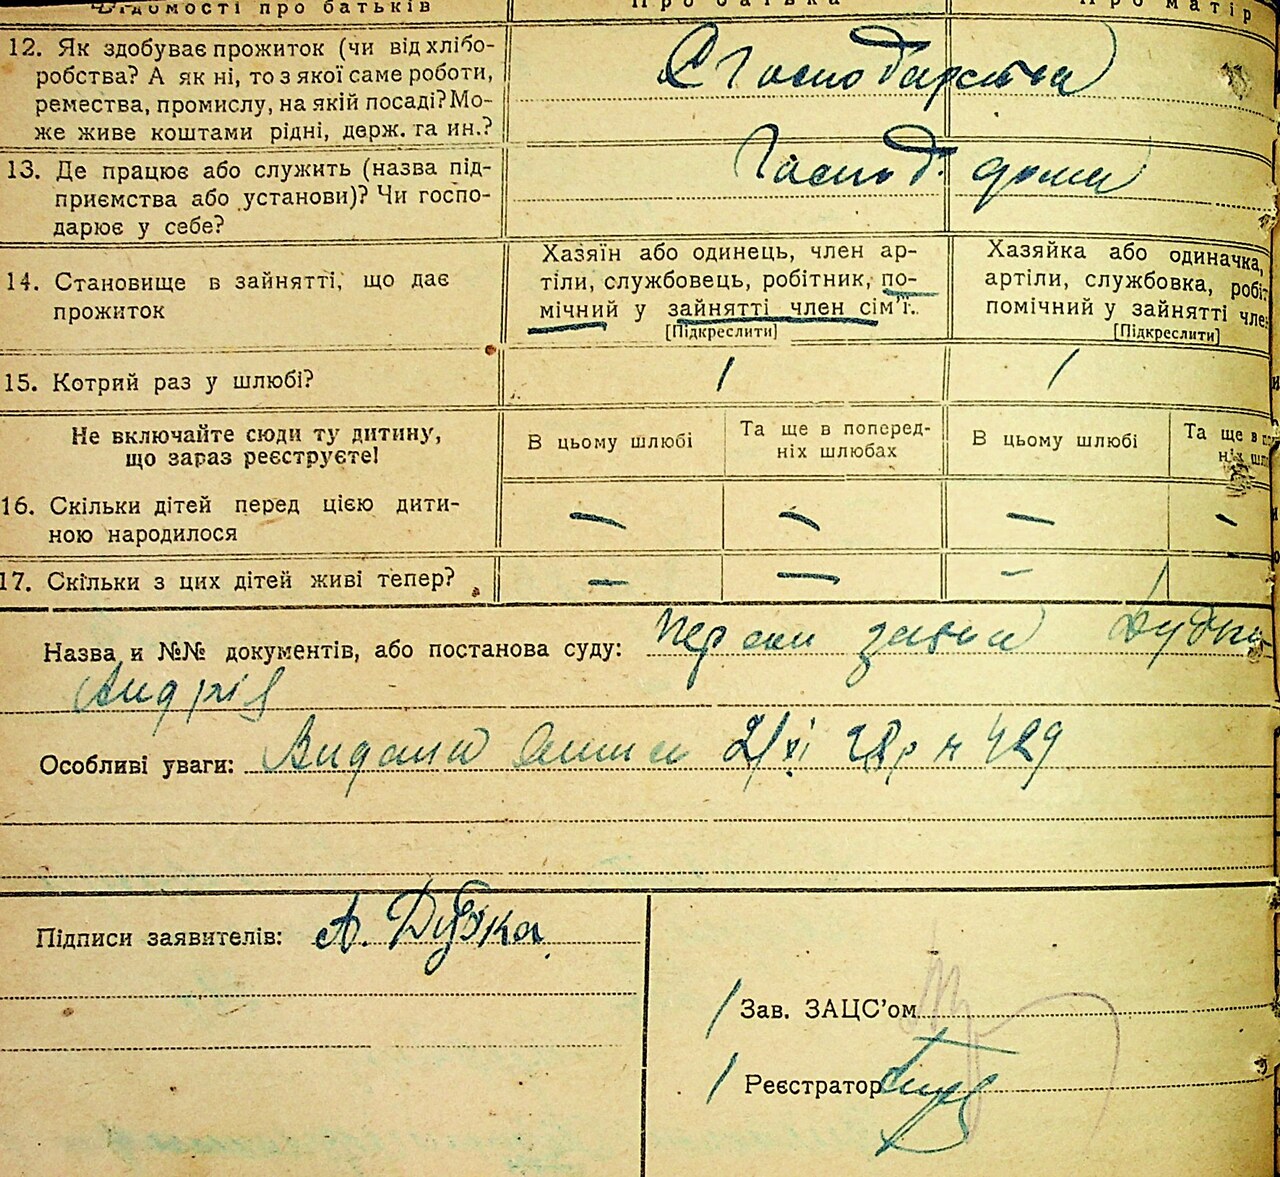 Відомості про батьків Про батька Про матір
12. Як здобуває прожиток (чи від хлібо-
робства? А як ні, то з якої саме роботи,
ремества, промислу, на якій посаді? Мо-
же живе коштами рідні, держ. та ин.?
Сг Господарства
13. Де працює або служить (назва під-
приємства або установи)? Чи госпо-
дарює у себе?
Господ. дома
14. Становище в зайнятті, що дає
прожиток
Хазяїн або одинець, член ар-
тіли, службовець, робітник, по-
мічний у зайнятті член сім'ї.
[Підкреслити]
Хазяйка або одиначка,
артіли, службовка, робіт
помічний у зайнятті чле
[Підкреслити]
15. Котрий раз у шлюбі? 1 1
Не включайте сюди ту дитину,
що зараз реєструєте!
В цьому шлюбі
Та ще в поперед-
ніх шлюбах
В цьому шлюбі
Та ще в по
ніх шлю
16. Скільки дітей перед цією дити-
ною народилося
— — — —
17. Скільки з цих дітей живі тепер? — — —
Назва и №№ документів, або постанова суду: заява Дудки
Андрія
Особливі уваги: Видано 2/XI 28р № 429
Підписи заявителів: А. Дудка
Зав. ЗАЦС'ом
Реєстратор